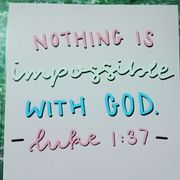 NOTHING IS
impossible
WITH GOD.
- luke 1:37 -